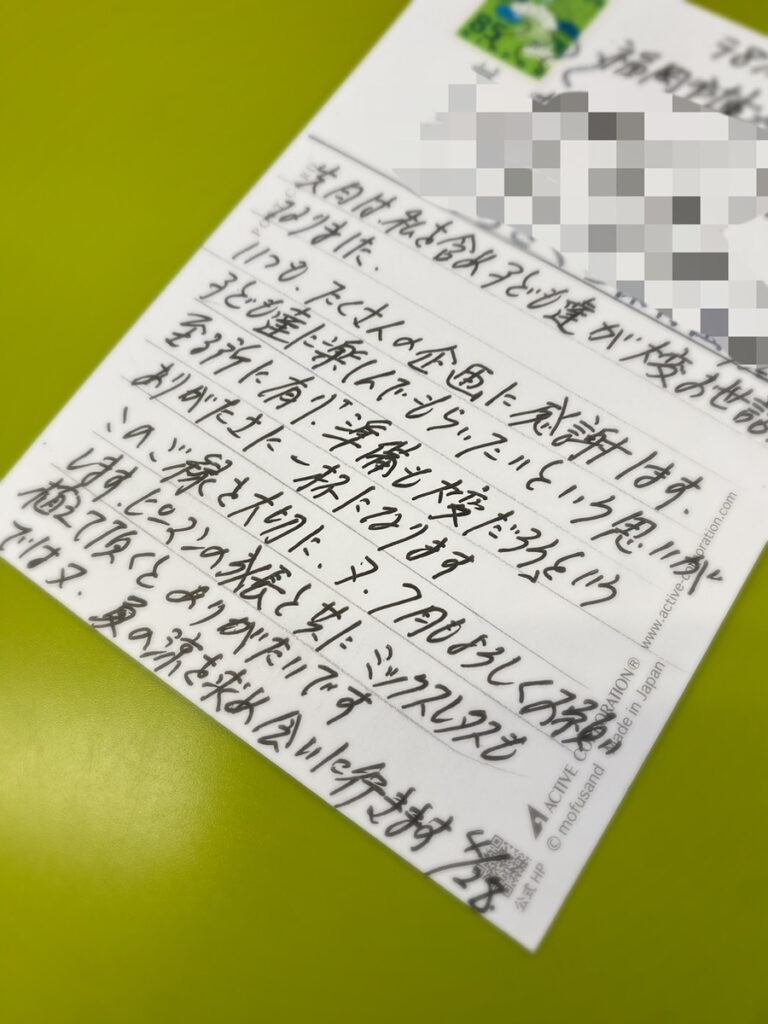 85
福岡
先日は、私も含め子ども達が大変お世話に
なりました。
いつも、たくさんの企画に感謝します。
子ども達に楽しんでもらいたいという思いが
至る所に有り、「準備も大変だろう」という
ありがたさに一杯になります
このご縁を大切に、又、7月もよろしくお願い
します。ピーマンの成長と共にミックスレタスも
植えて頂くとありがたいです
では又、員の涼を求め会いに行きます 4/28
www.active-corporation.com
ACTIVE CORPORATION® Made in Japan
© mofusand
公式HP